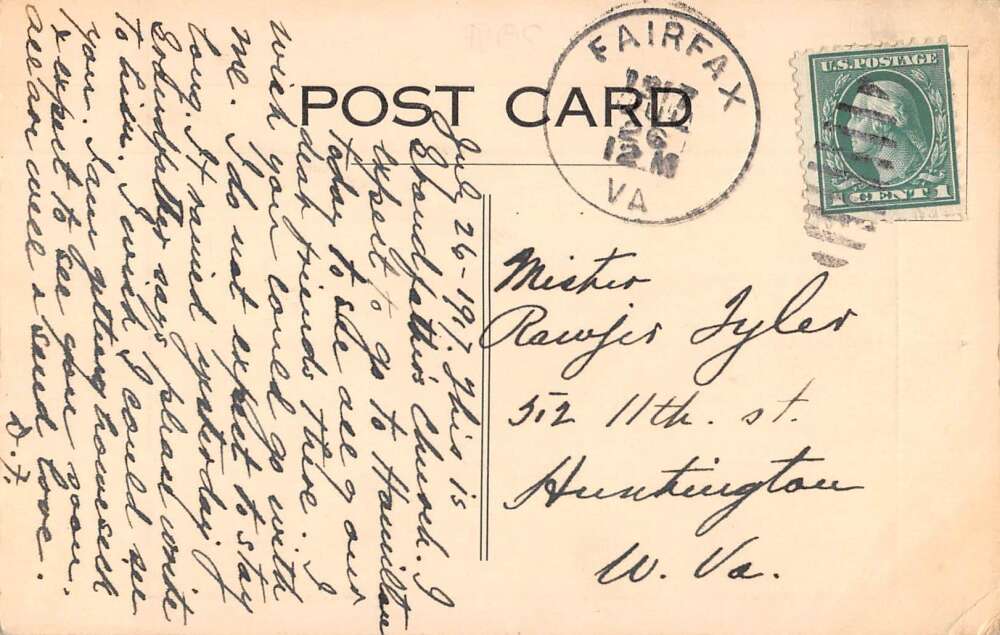 POST CARD
FAIRFAX
1917
JUL
26
12 M
VA
U.S. POSTAGE
1 CENT 1
July 26-1917. This is
Grandfather's Church. I
expect to go to Hamilton
today to see all of our
dear friends there. I
wish you could go with
me. I do not expect to stay
long. It rained yesterday
Grandfather says please write
to him. I wish I could see
you. I am getting homesick
& expect to see you soon.
all are well & send love.
D.F.
Mister
Rawjer Tyler
512 11th. st.
Huntington
W. Va.